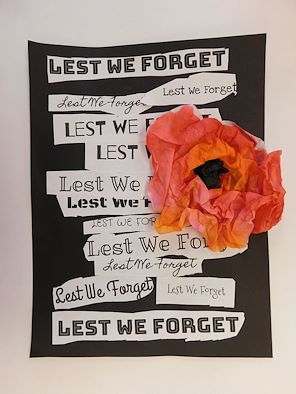 LEST WE FORGET
Lest We Forget
Lest We Forget
LEST WE
LEST
Lest We
LEST WE
LEST WE FOR
Lest We For
Lest We Forget
Lest We Forget
Lest We Forget
LEST WE FORGET